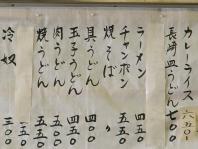 カレーライス
長崎皿うどん 七〇〇
ラーメン 四五〇
チャンポン 五五〇
焼そば 〃
具うどん 四〇〇
玉子うどん 四五〇
肉うどん 五五〇
焼うどん 五五〇
冷奴 三〇〇